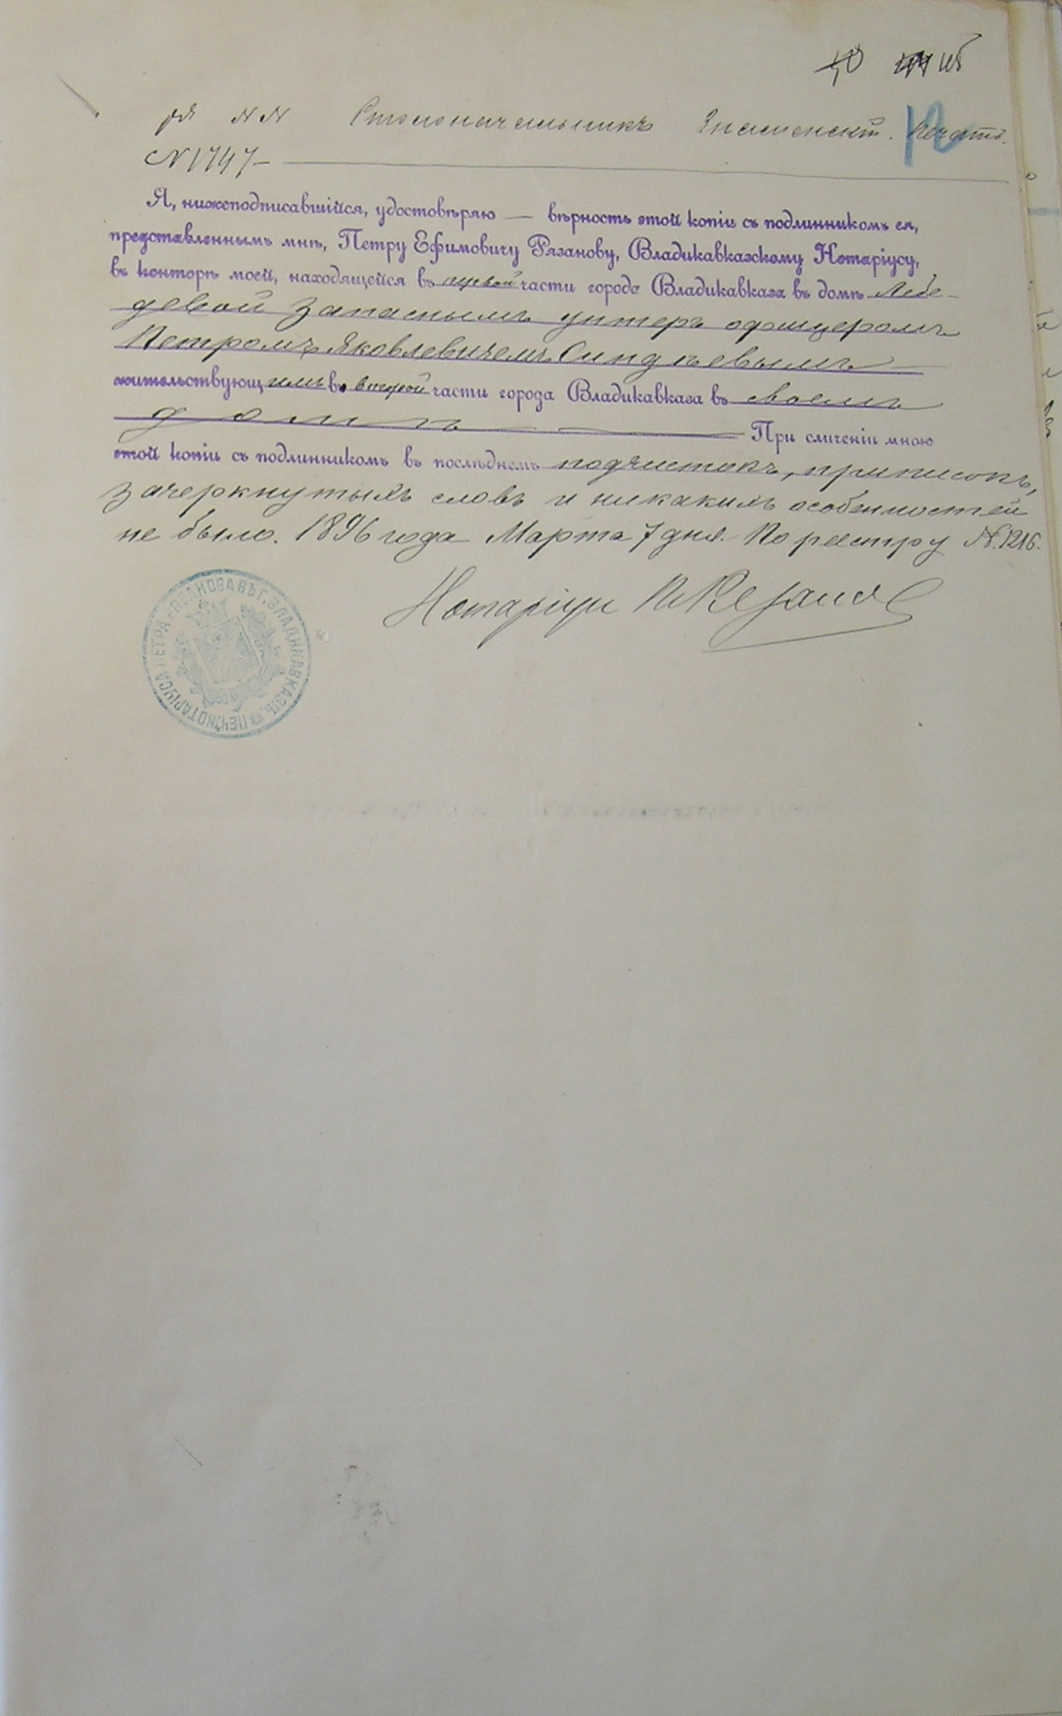 Столоначальникъ Знаменскій. Печать.
№ 1747
Я, нижеподписавшійся, удостовѣряю — вѣрность этой копіи съ подлинникомъ ея,
представленнымъ мнѣ, Петру Ефимовичу Рязанову, Владикавказскому Нотаріусу,
въ конторѣ моей, находящейся въ первой части города Владикавказа въ домѣ Лебе-
девой запаснымъ унтеръ офицеромъ
Петромъ Яковлевичемъ Синдѣевымъ
жительствующимъ въ второй части города Владикавказа въ своемъ
домѣ — При сличеніи мною
этой копіи съ подлинникомъ въ послѣднемъ подчистокъ, приписокъ,
зачеркнутыхъ словъ и никакихъ особенностей
не было. 1896 года Марта 7 дня. По реестру № 1216.
Нотаріусъ П. Рязановъ